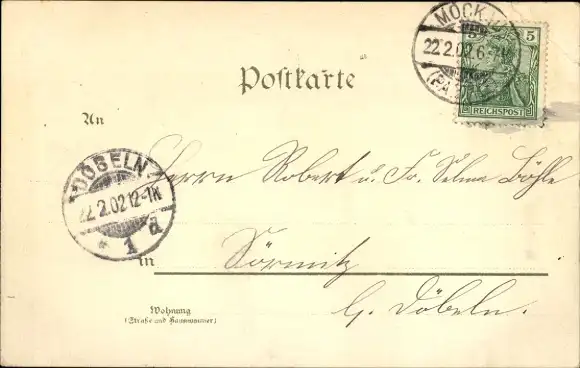 MOCK
5 5
22.2.02 6-
(PA
REICHSPOST
Postkarte
An
DÖBELN
22.2.02 12-1N
* 1 d
Herrn Robert u. Fr. Selma Böhle
in Sörmitz
b. Döbeln.
Wohnung
(Straße und Hausnummer)